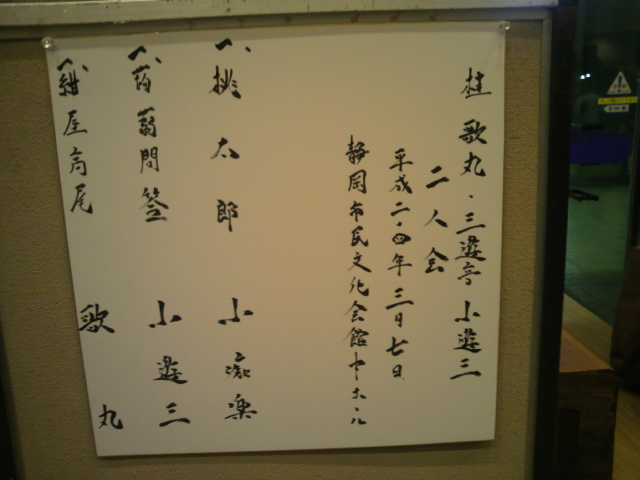 桂歌丸・三遊亭小遊三
二人会
平成二・四年三月七日
静岡市民文化会館中ホール
一、桃太郎 小痴楽
一、蒟蒻問答 小遊三
一、紺屋高尾 歌丸